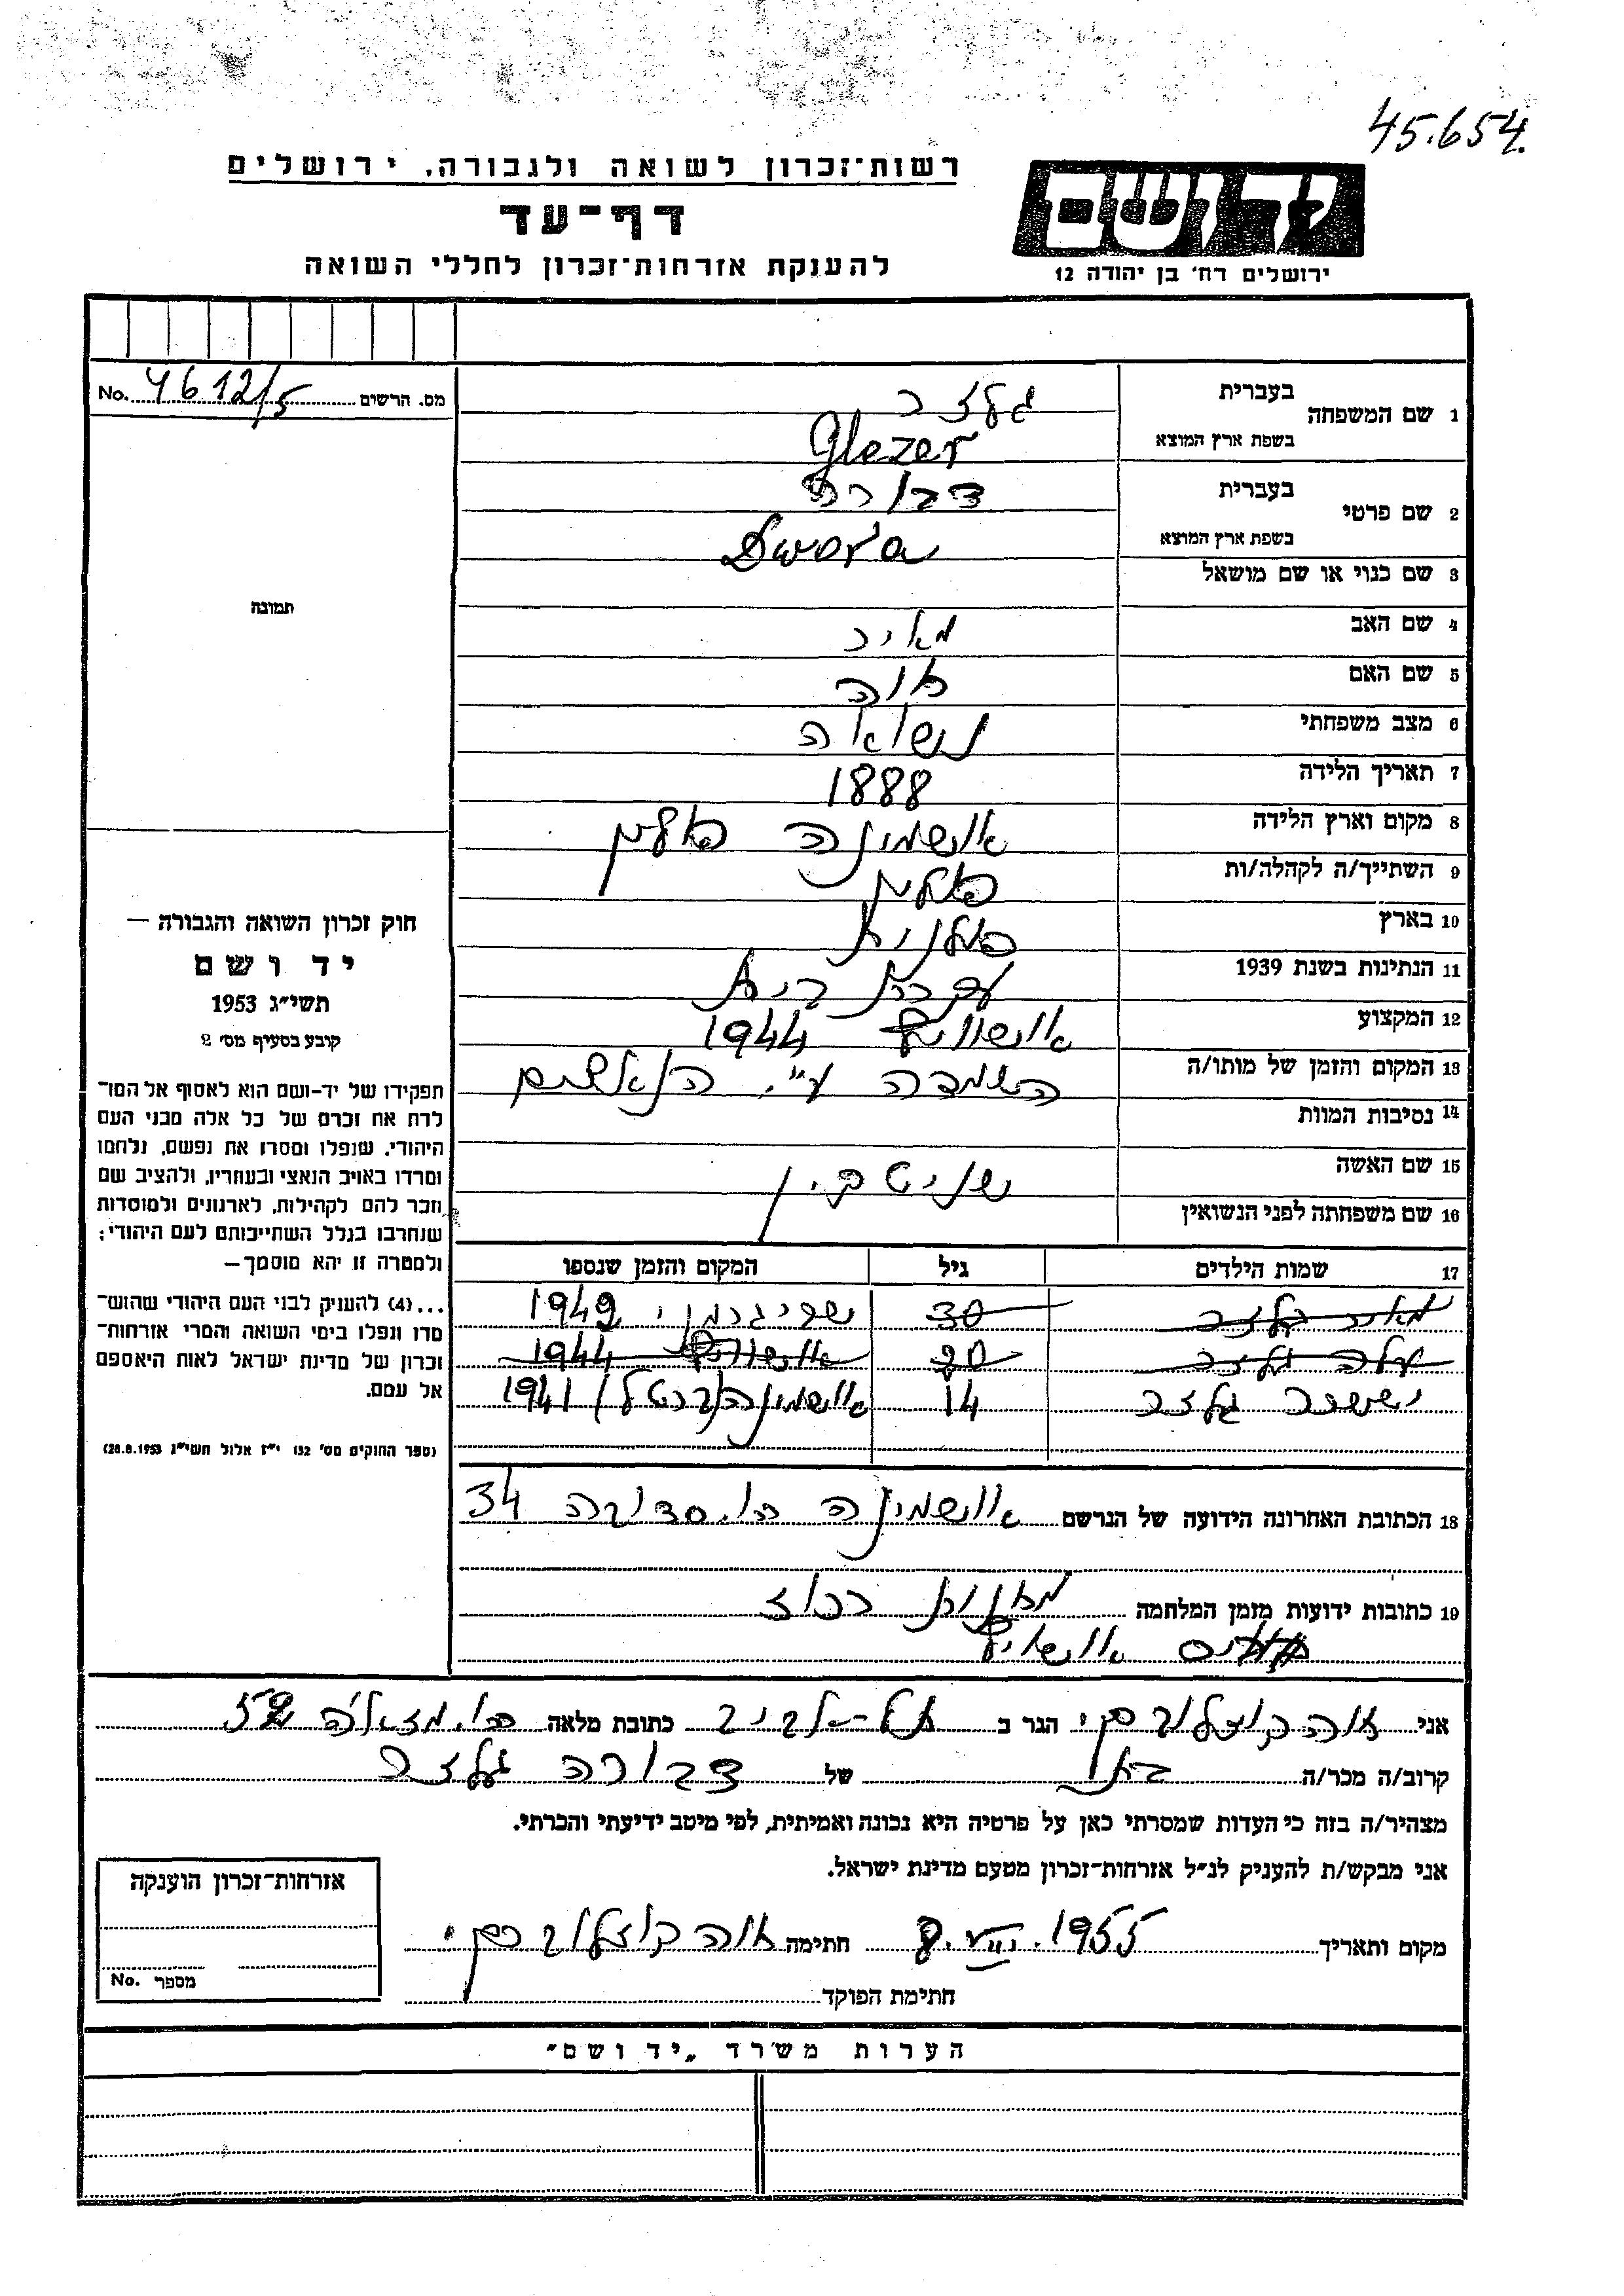 45.654.
רשות־זכרון לשואה ולגבורה, ירושלים
דף־עד
להענקת אזרחות־זכרון לחללי השואה
יד ושם
ירושלים רח' בן יהודה 12
מס. הרשום 4612/5 No.
1 שם המשפחה
בעברית גלזר
בשפת ארץ המוצא Glezer
2 שם פרטי
בעברית דבורה
בשפת ארץ המוצא Dwora
3 שם כנוי או שם מושאל
4 שם האב מאיר
5 שם האם חוה
6 מצב משפחתי נשואה
7 תאריך הלידה 1888
8 מקום וארץ הלידה אושמינה פולין
9 השתייך/ה לקהלה/ות
10 בארץ פולין
11 הנתינות בשנת 1939 פולנית
12 המקצוע עקרת בית
13 המקום והזמן של מותו/ה 1944
14 נסיבות המוות הושמדה ע"י
15 שם האשה
16 שם משפחתה לפני הנשואין
17 שמות הילדים גיל המקום והזמן שנספו
מאיר גלזר 30 1942
גלזר 20 1944
יששכר גלזר 14 אושמינה 1941
18 הכתובת האחרונה הידועה של הנרשם אושמינה 34
19 כתובות ידועות מזמן המלחמה מחנות רכוז
תמונה
חוק זכרון השואה והגבורה —
יד ושם
תשי"ג 1953
קובע בסעיף מס' 2
תפקידו של יד-ושם הוא לאסוף אל המו־
לדת את זכרם של כל אלה מבני העם
היהודי, שנפלו ומסרו את נפשם, נלחמו
ומרדו באויב הנאצי ובעוזריו, ולהציב שם
וזכר להם לקהילות, לארגונים ולמוסדות
שנחרבו בגלל השתייכותם לעם היהודי;
ולמטרה זו יהא מוסמך—
...(4) להעניק לבני העם היהודי שהוש־
מדו ונפלו בימי השואה והמרי אזרחות־
זכרון של מדינת ישראל לאות היאספם
אל עמם.
(ספר החוקים מס' 132 י"ז אלול תשי"ג 28.8.1953)
אני חוה קוזלובסקי הגר ב תל-אביב כתובת מלאה 52
קרוב/ה מכר/ה בתו של דבורה גלזר
מצהיר/ה בזה כי העדות שמסרתי כאן על פרטיה היא נכונה ואמיתית, לפי מיטב ידיעתי והכרתי.
אני מבקש/ת להעניק לנ"ל אזרחות-זכרון מטעם מדינת ישראל.
מקום ותאריך 8.VIII.1955 חתימה חוה קוזלובסקי
חתימת הפוקד
אזרחות־זכרון הוענקה
מספר No.
הערות משרד „יד ושם"